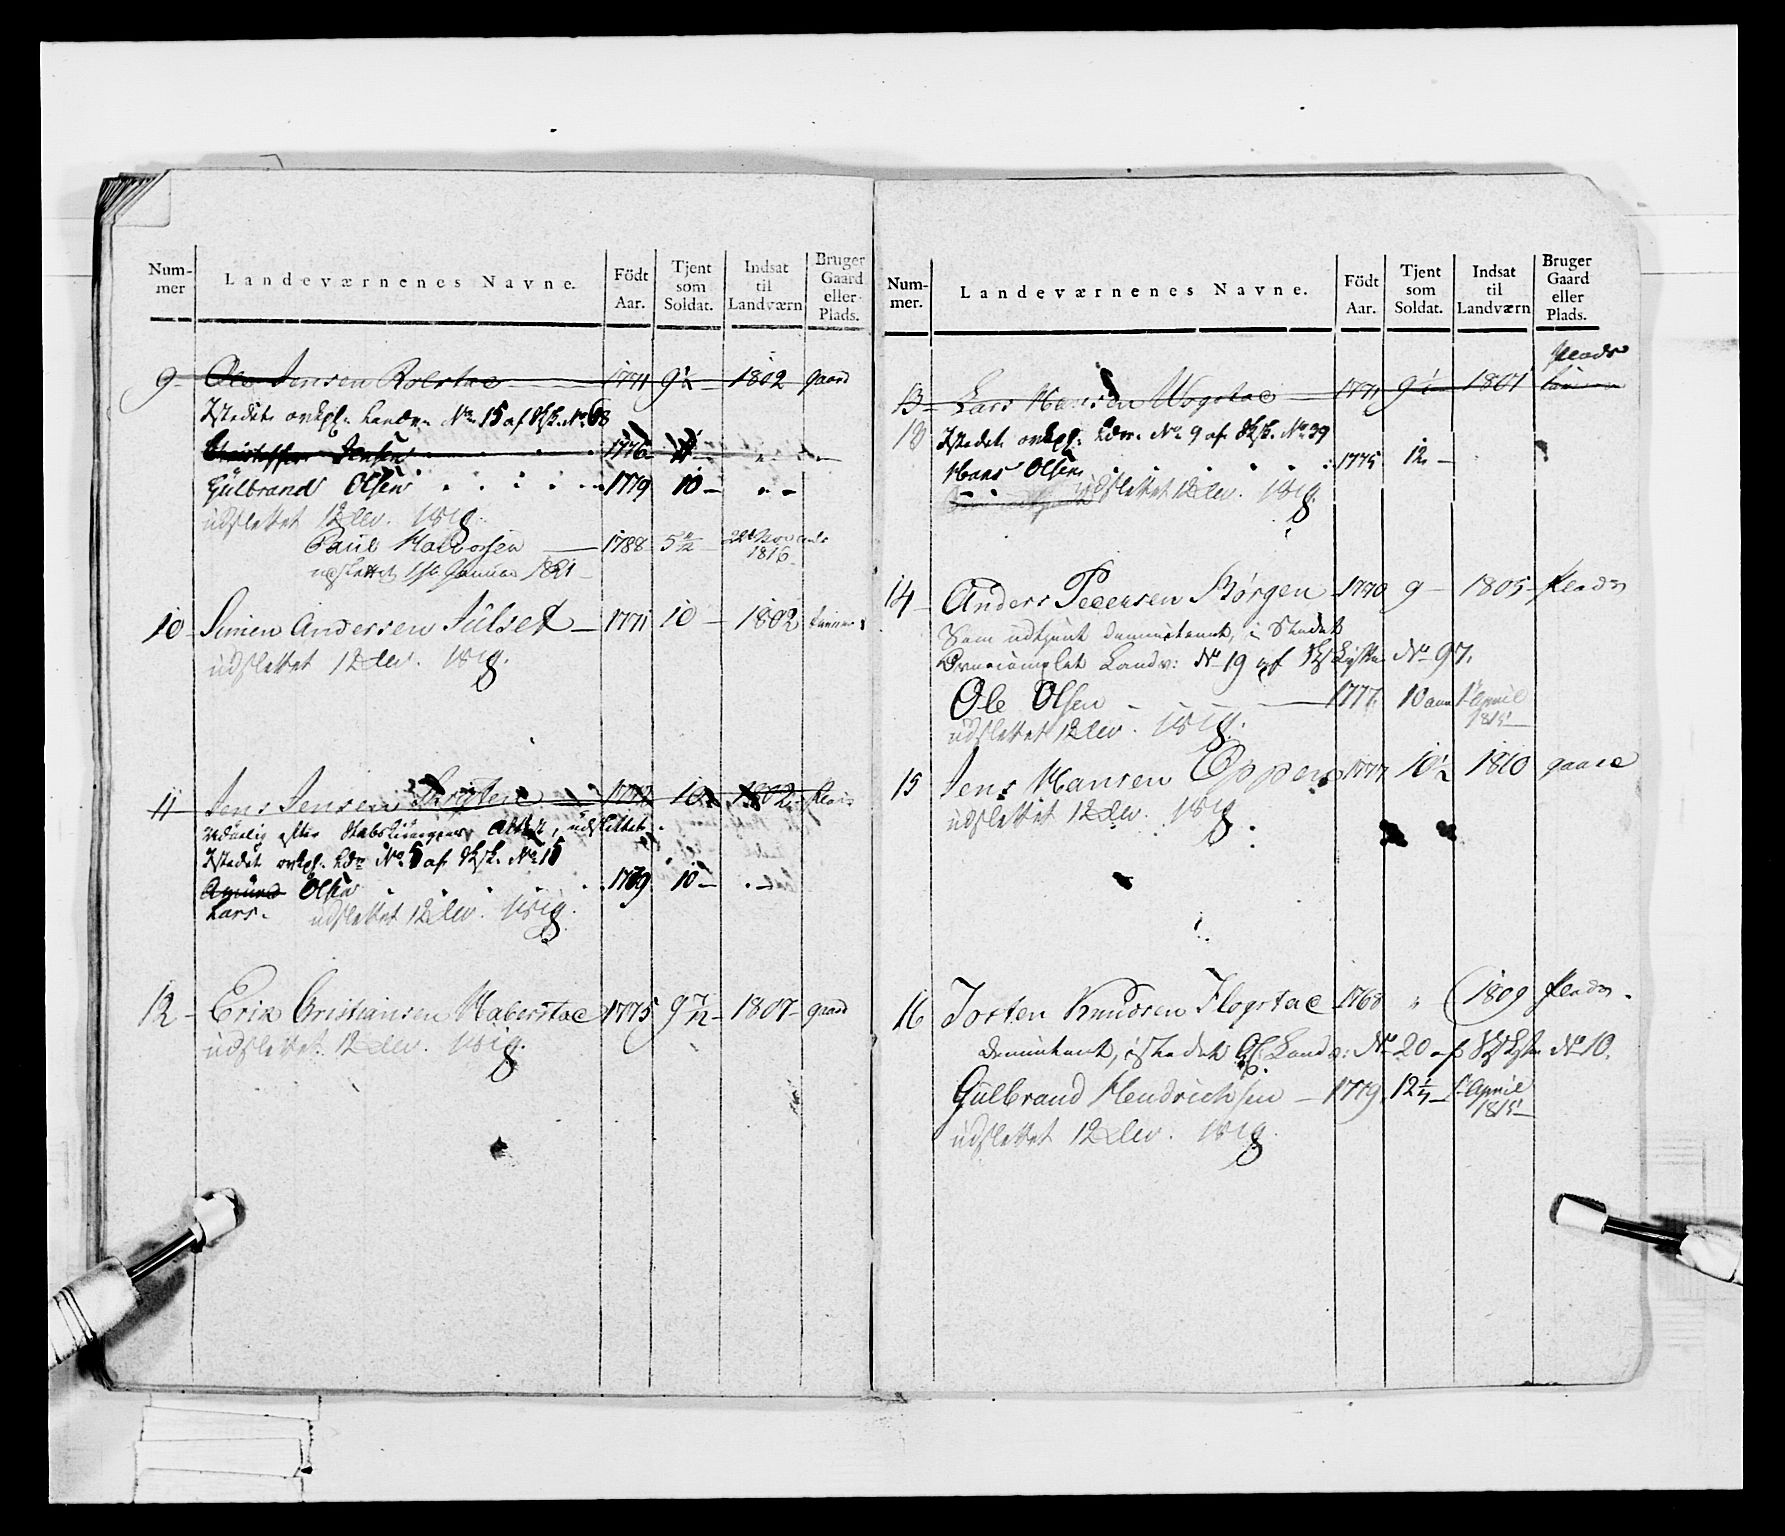 Num-
mer
Landeværnenes Navne.
Födt
Aar.
Tjent
som
Soldat.
Indsat
til
Landværn
Bruger
Gaard
eller
Plads.
9 Ole Jensen Rolstad 1771 9½ 1802 gaard
Istedet No 15 af No 68
Christopher Jensen 1776
Gülbrand Olsen 1779 10
udslettet 12 Dev. 1818.
Paul Halvorsen 1788 5 22d Nov
1816
udslettet 1ste Januar 1821
10 Simen Andersen Julset 1771 10 1802
udslettet 12 Dev. 1818.
11 Jens Jensen 1772 10 1802 Plads
efter Attest, udslettet
Istedet No 5 af No 15
Amund Olsen 1779 10
Lars. udslettet 12 Dev. 1818.
12 Erik Cristiansen Haberstad 1775 9 7/12 1807 gaard
udslettet 12 Dev. 1818.
Num-
mer.
Landeværnenes Navne.
Födt
Aar.
Tjent
som
Soldat.
Indsat
til
Landværn
Bruger
Gaard
eller
Plads.
Plads
13 Lars Hansen Wogstad 1771 9½ 1801
13 Istedet No 9 af No 39
Hans Olsen 1775 12
udslettet 12 Dev. 1818.
14 Anders Pedersen Börgen 1770 9 1805 Plads
Som udtjent i Stedet
Landv: No 19 af No 97.
Ole Olsen 1777 10 1 April
1815
udslettet 12 Dev. 1818.
15 Jens Hansen Oppen 1777 10½ 1810 gaard
udslettet 12 Dev. 1818.
16 Josten Knudsen Flogstad 1768 " 1809 Plads
istedet Landv: No 20 af No 10.
Gülbrand Hendrichsen 1779 12 1 April
1815
udslettet 12 Dev. 1818.